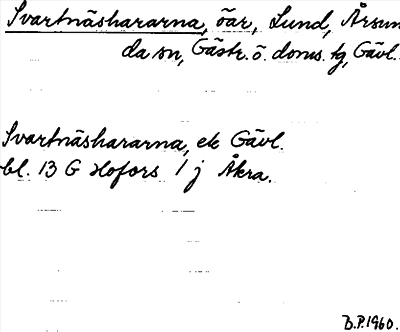 Svartnäshararna, öar, Lund, Årsun
da sn, Gästr. ö. doms. tg, Gävl.
Svartnäshararna, ek Gävl.
bl. 13 G Hofors 1 j Åkra.
B.P. 1960.